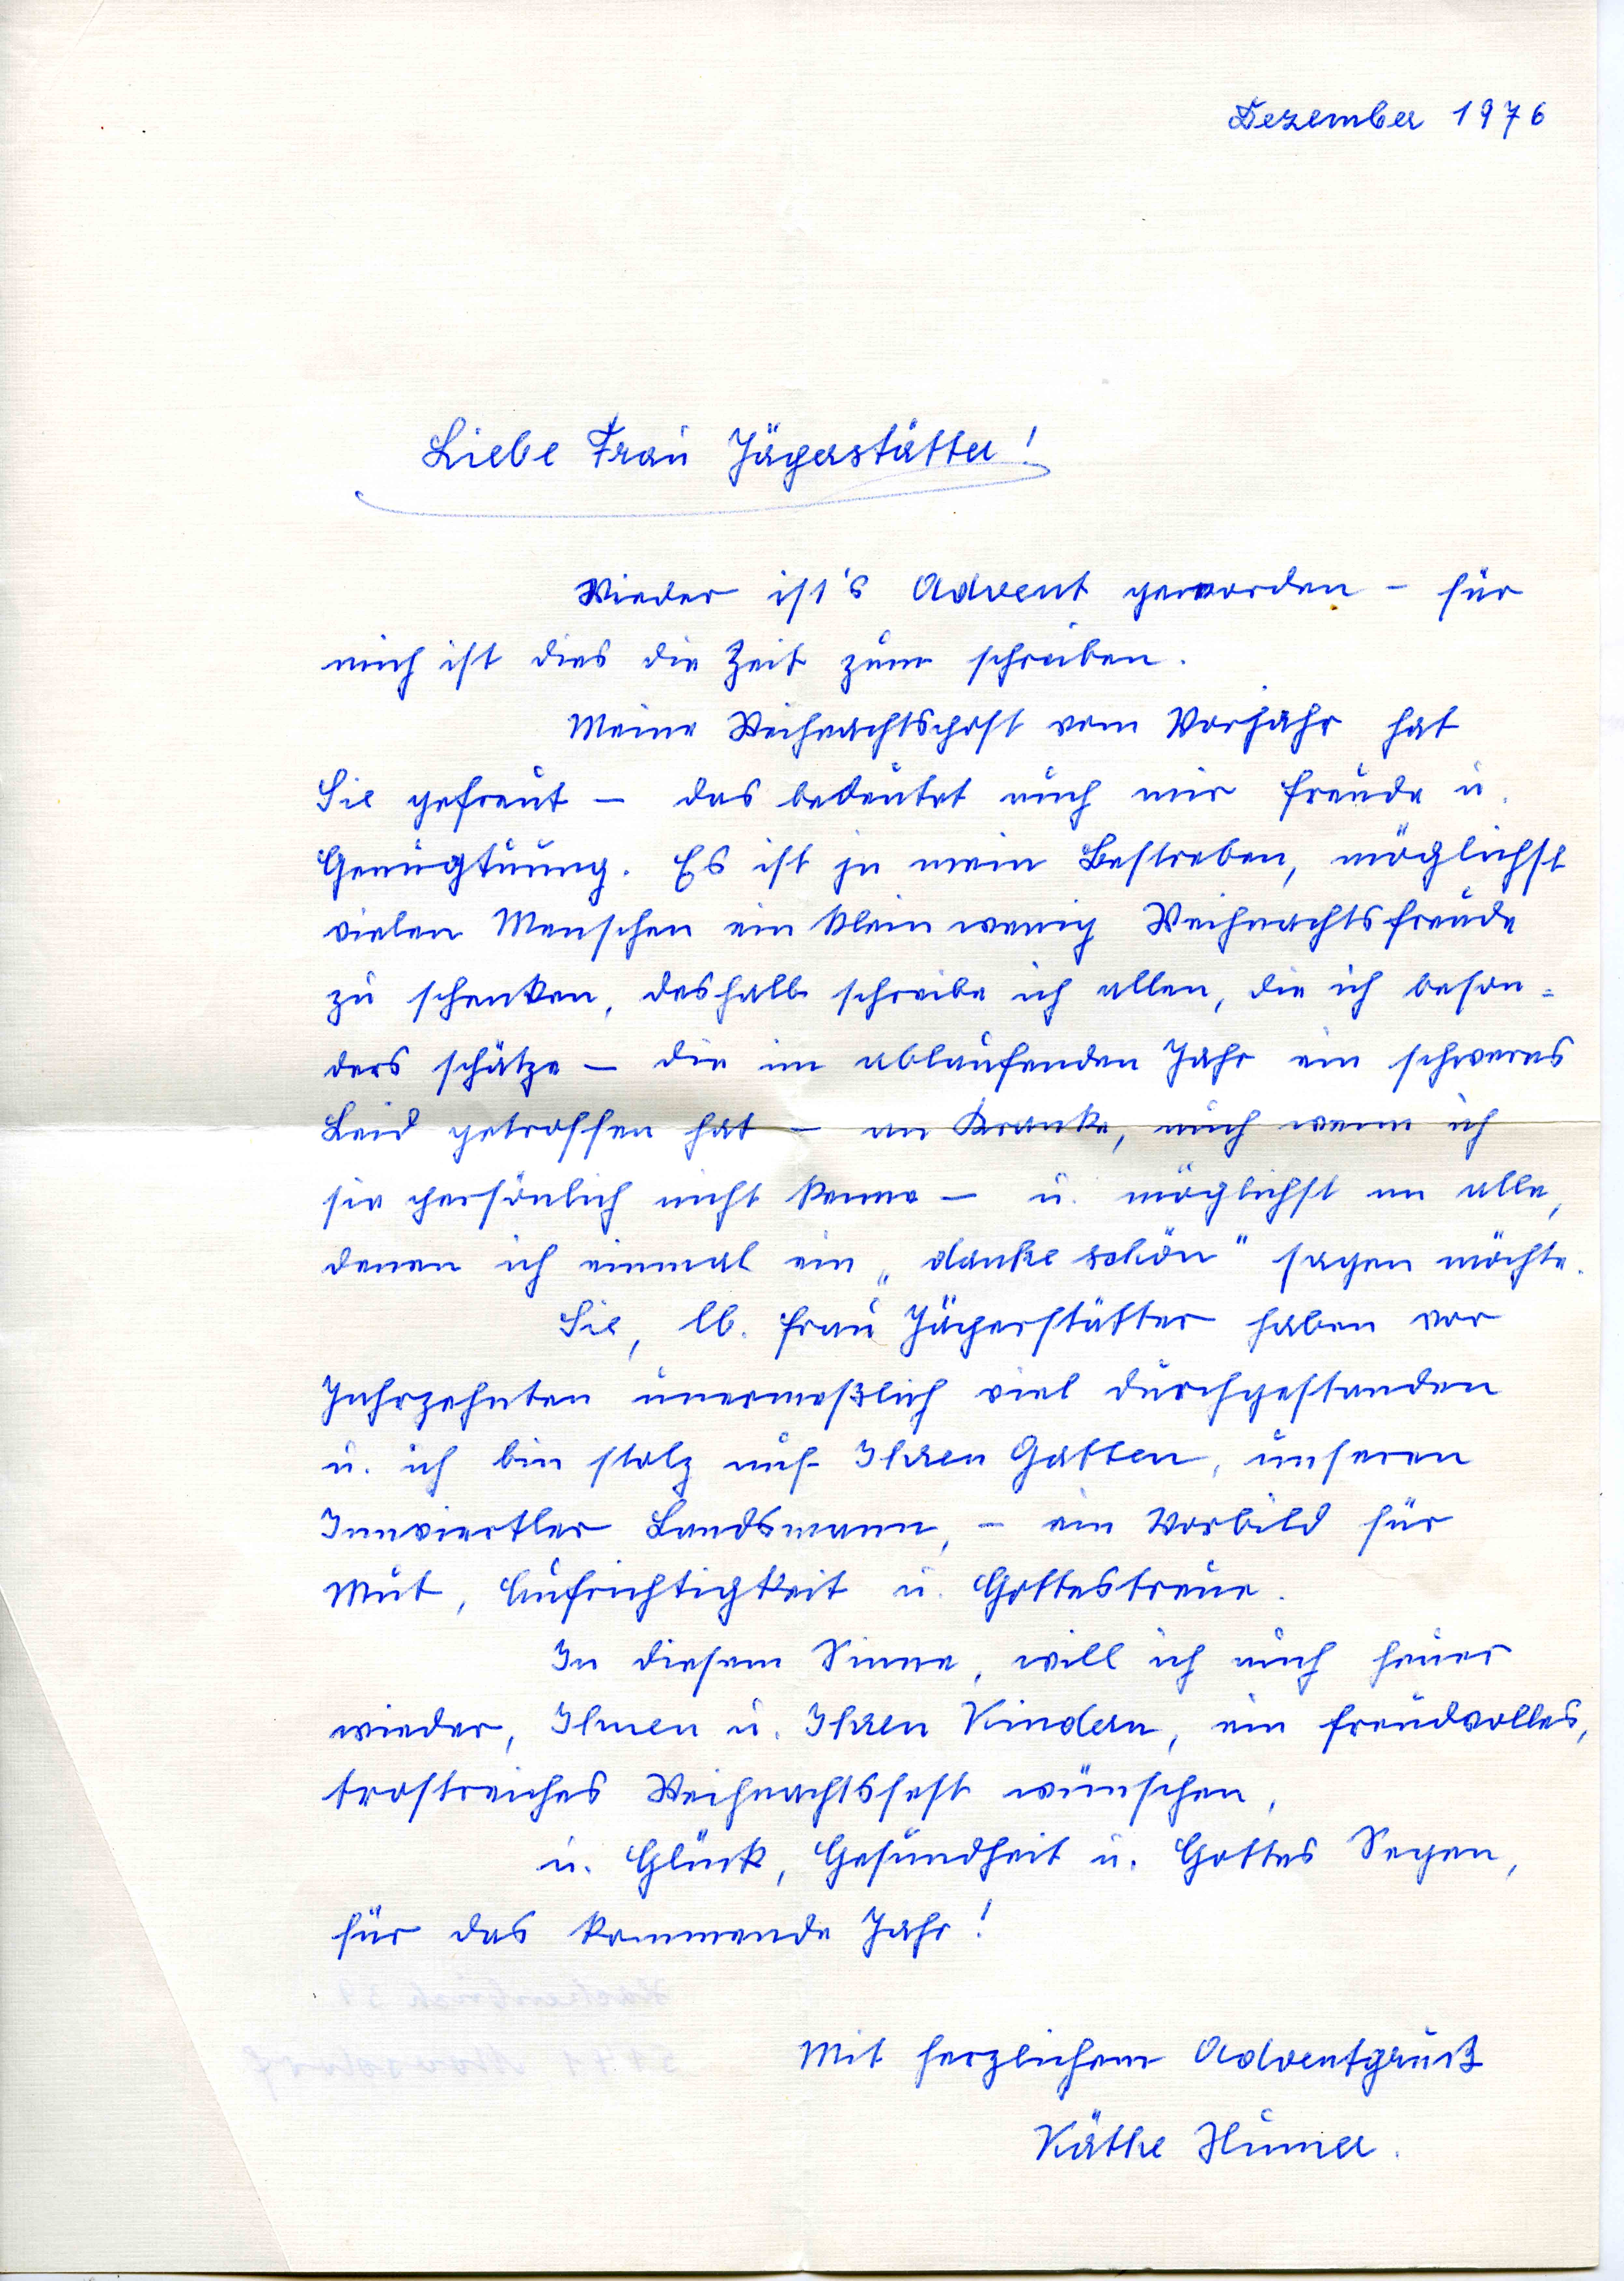 Dezember 1976
Liebe Frau Jägerstätter!
Wieder ist's Advent geworden – für
mich ist dies die Zeit zum schreiben.
Meine Weihnachtspost vom Vorjahr hat
Sie gefreut – das bedeutet auch mir Freude u.
Genugtuung. Es ist ja mein Bestreben, möglichst
vielen Menschen ein klein wenig Weihnachtsfreude
zu schenken, deshalb schreibe ich allen, die ich beson=
ders schätze – die im ablaufenden Jahr ein schweres
Leid getroffen hat – an Kranke, auch wenn ich
sie persönlich nicht kenne – u. möglichst an alle,
denen ich einmal ein „danke schön" sagen möchte.
Sie, lb. Frau Jägerstätter haben vor
Jahrzehnten unermeßlich viel durchgestanden
u. ich bin stolz auf Ihren Gatten, unseren
Innviertler Landsmann, – ein Vorbild für
Mut, Aufrichtigkeit u. Gottestreue.
In diesem Sinne, will ich auch heuer
wieder, Ihnen u. Ihren Kindern, ein freudvolles,
trostreiches Weihnachtsfest wünschen,
u. Glück, Gesundheit u. Gottes Segen,
für das kommende Jahr!
Mit herzlichem Adventgruß
Käthe Humer.